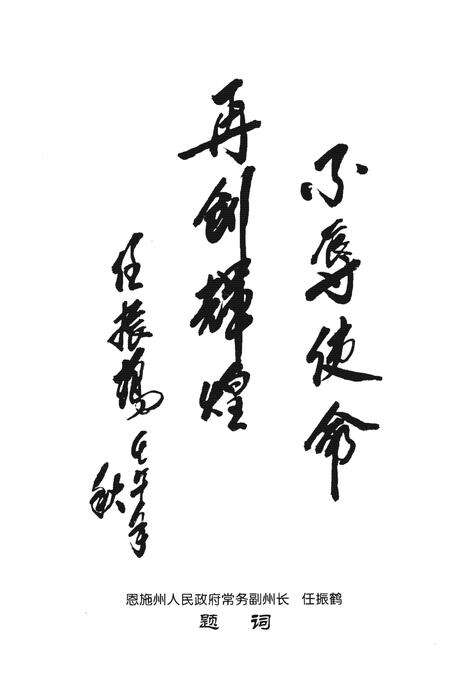 不辱使命
再创辉煌
任振鹤 壬午年
秋
恩施州人民政府常务副州长 任振鹤
题 词